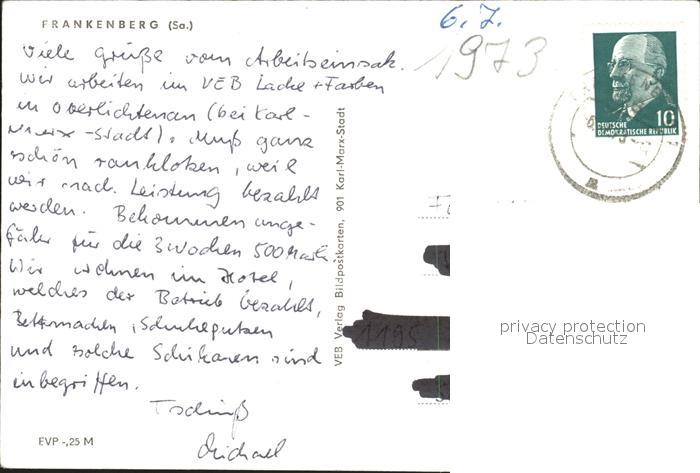 FRANKENBERG (Sa.)
6.7.
1973
Viele Grüße vom Arbeitseinsatz.
Wir arbeiten im VEB Lacke + Farben
in Oberlichtenau (bei Karl-
Marx-Stadt). Muß ganz
schön ranklotzen, weil
wir nach Leistung bezahlt
werden. Bekommen unge-
fähr für die 3 Wochen 500 Mark.
Wir wohnen im Hotel,
welches der Betrieb bezahlt,
Bettenmachen, Schuheputzen
und solche Schikanen sind
inbegriffen.
Tschüß
Michael
EVP -,25 M
VEB Verlag Bildpostkarten, 901 Karl-Marx-Stadt
10
DEUTSCHE
DEMOKRATISCHE REPUBLIK
1195
privacy protection
Datenschutz